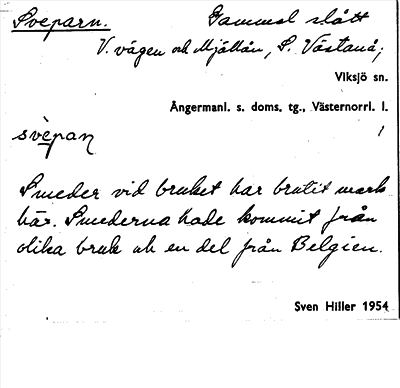 Sveparn. Gammal slått
V. vägen och Mjällån, S. Västanå,
Viksjö sn.
Ångermanl. s. doms, tg., Västernorrl. l.
svèpan
Smeder vid bruket har brutit mark
här. Smederna hade kommit från
olika bruk och en del från Belgien.
Sven Hiller 1954